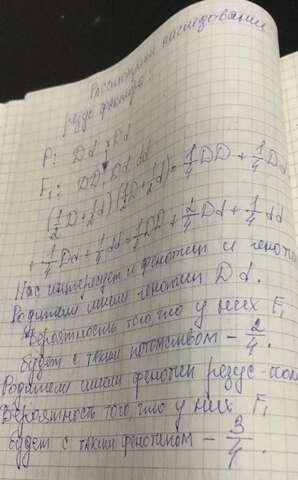 Рассмотрим наследование
резус фактора.
P: Dd × Dd
F₁: DD, Dd, dd
(1/2 D + 1/2 d) (1/2 D + 1/2 d) = 1/4 DD + 1/4 Dd
+ 1/4 Dd + 1/4 dd = 1/4 DD + 2/4 Dd + 1/4 dd
Нас интересует и фенотип и
Родители имели генотип Dd.
Вероятность того, что у них F₁
будет с таким потомством – 2/4.
Родители имели фенотип резус-
Вероятность того, что у них F₁
будет с таким фенотипом – 3/4.